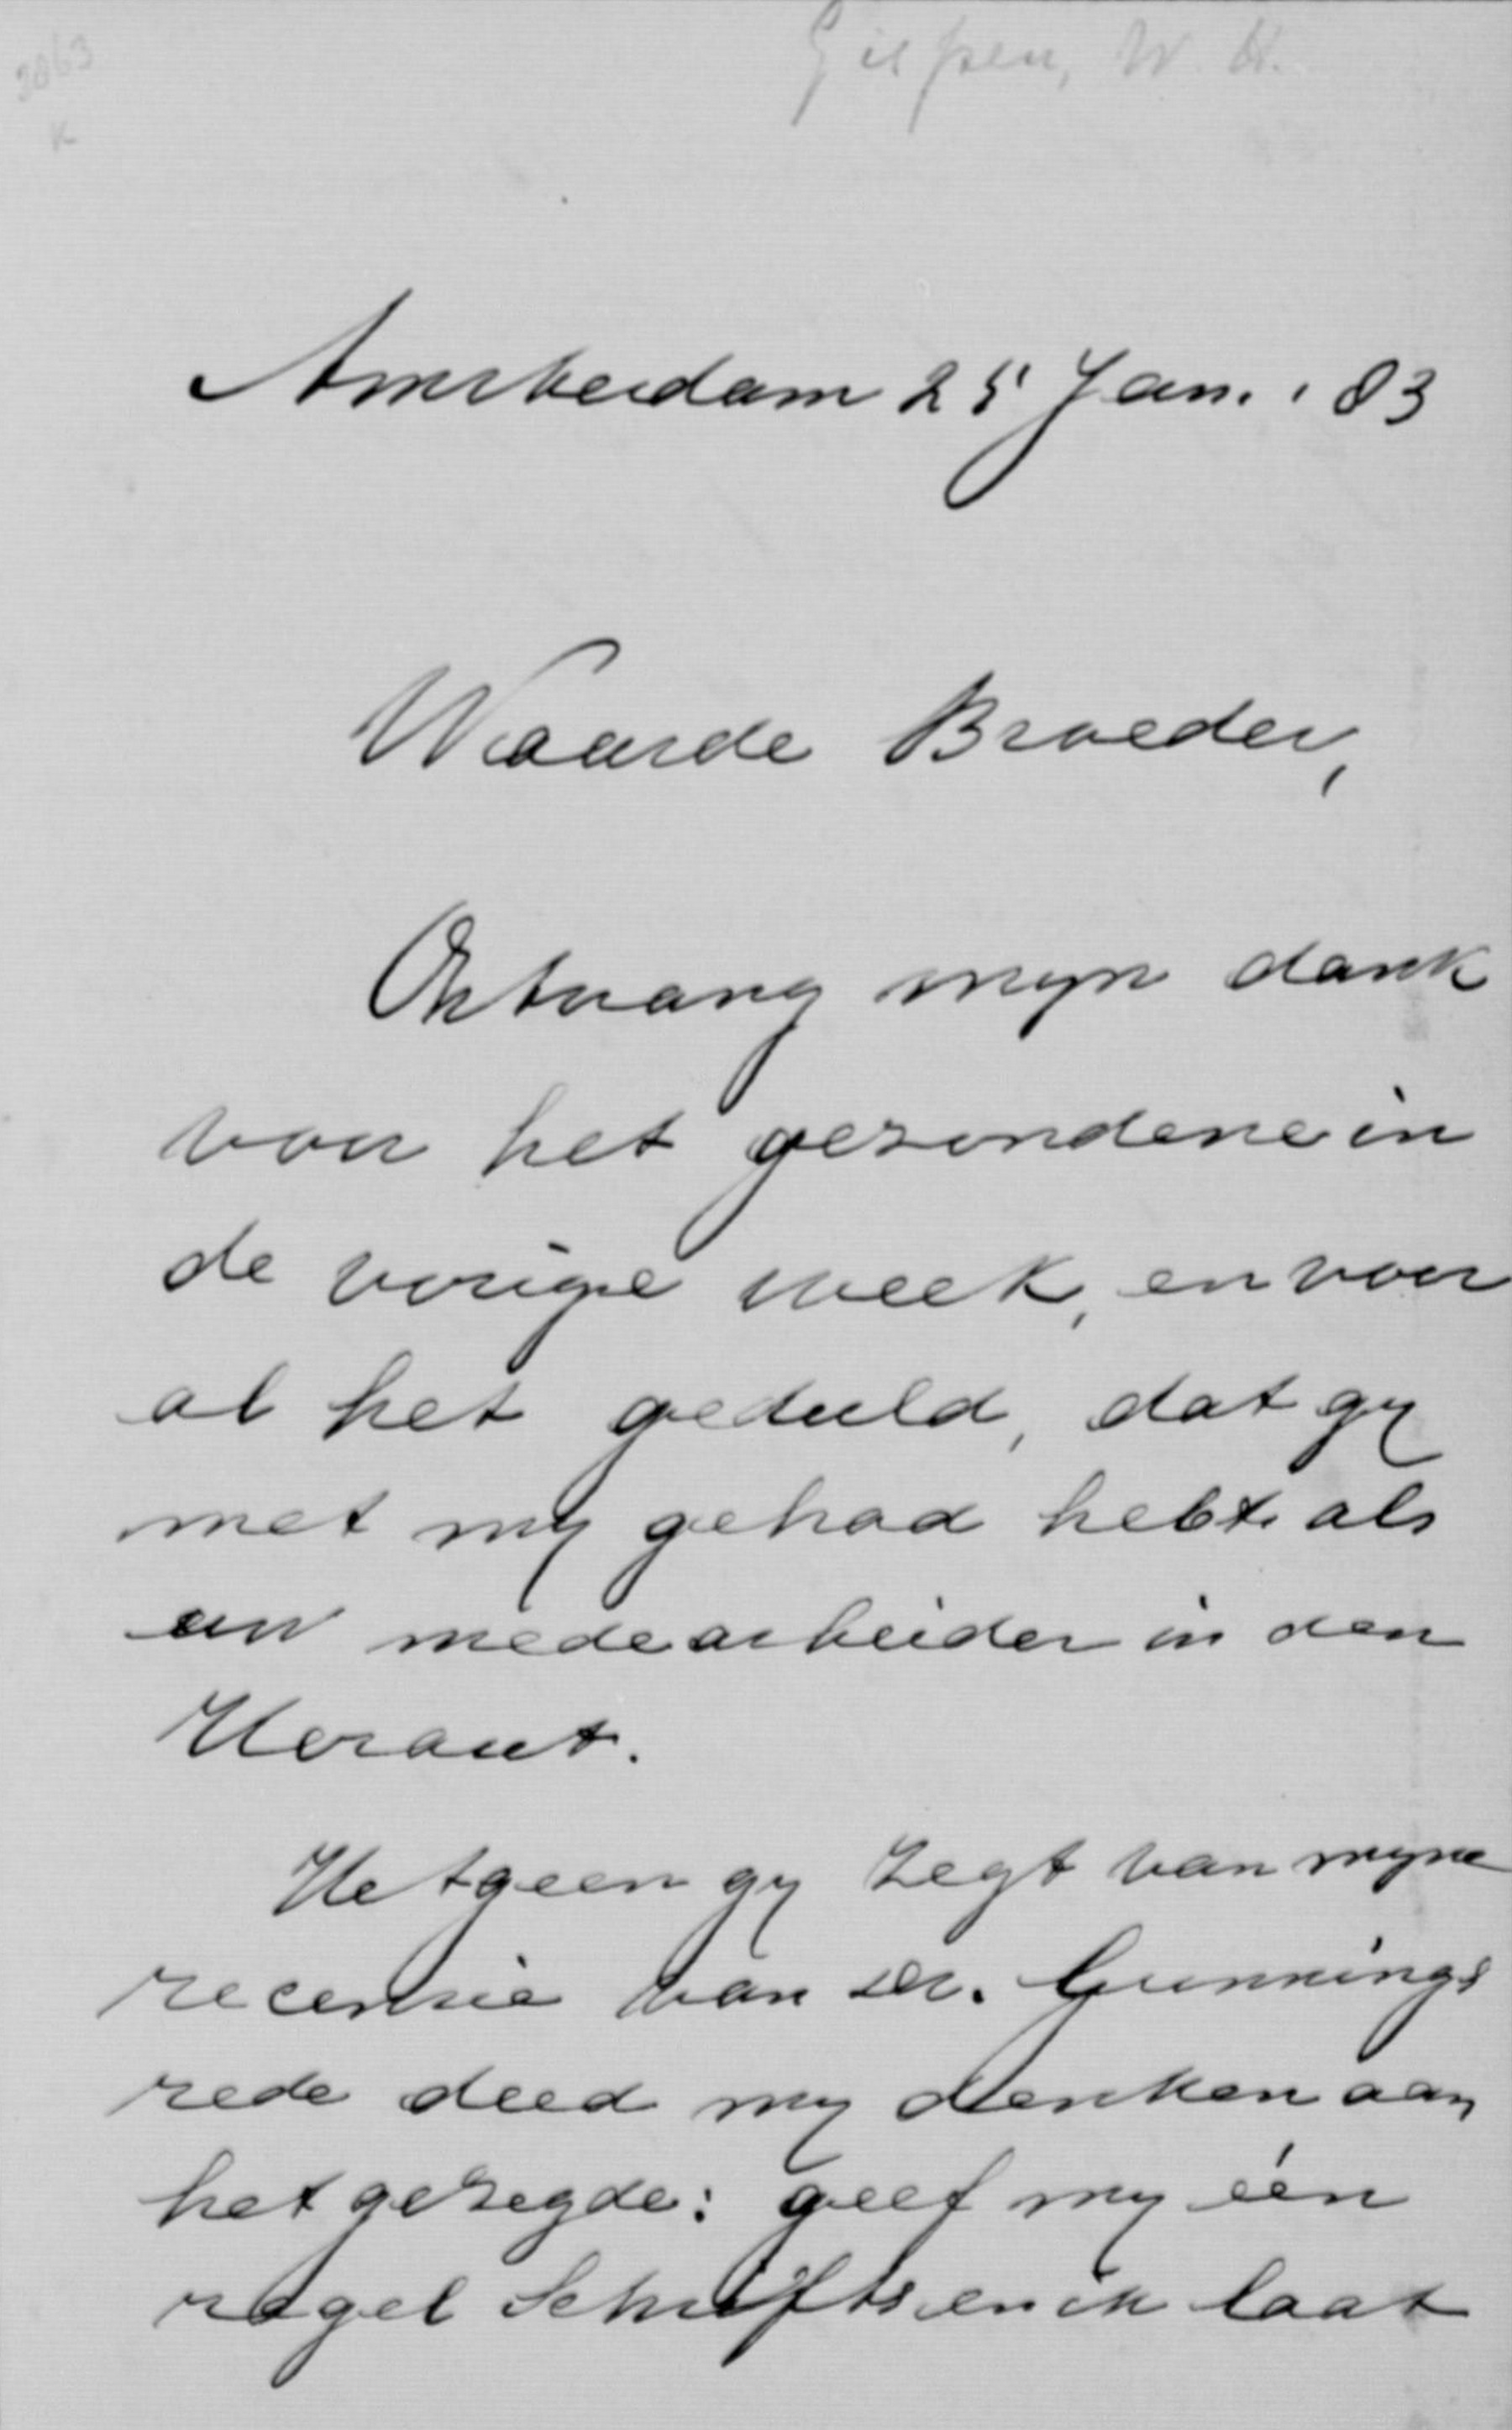 Gispen, W. H.
3863
K
Amsterdam 25 Jan. '83
Waarde Broeder,
Ontvang myn dank
voor het gezondene in
de vorige week, en voor
al het geduld, dat gy
met my gehad hebt als
uw medearbeider in den
Heraut.
Hetgeen gy zegt van myne
recensie van Dr. Gunnings
rede deed my denken aan
het gezegde: geef my één
regel Schrifts en ik laat